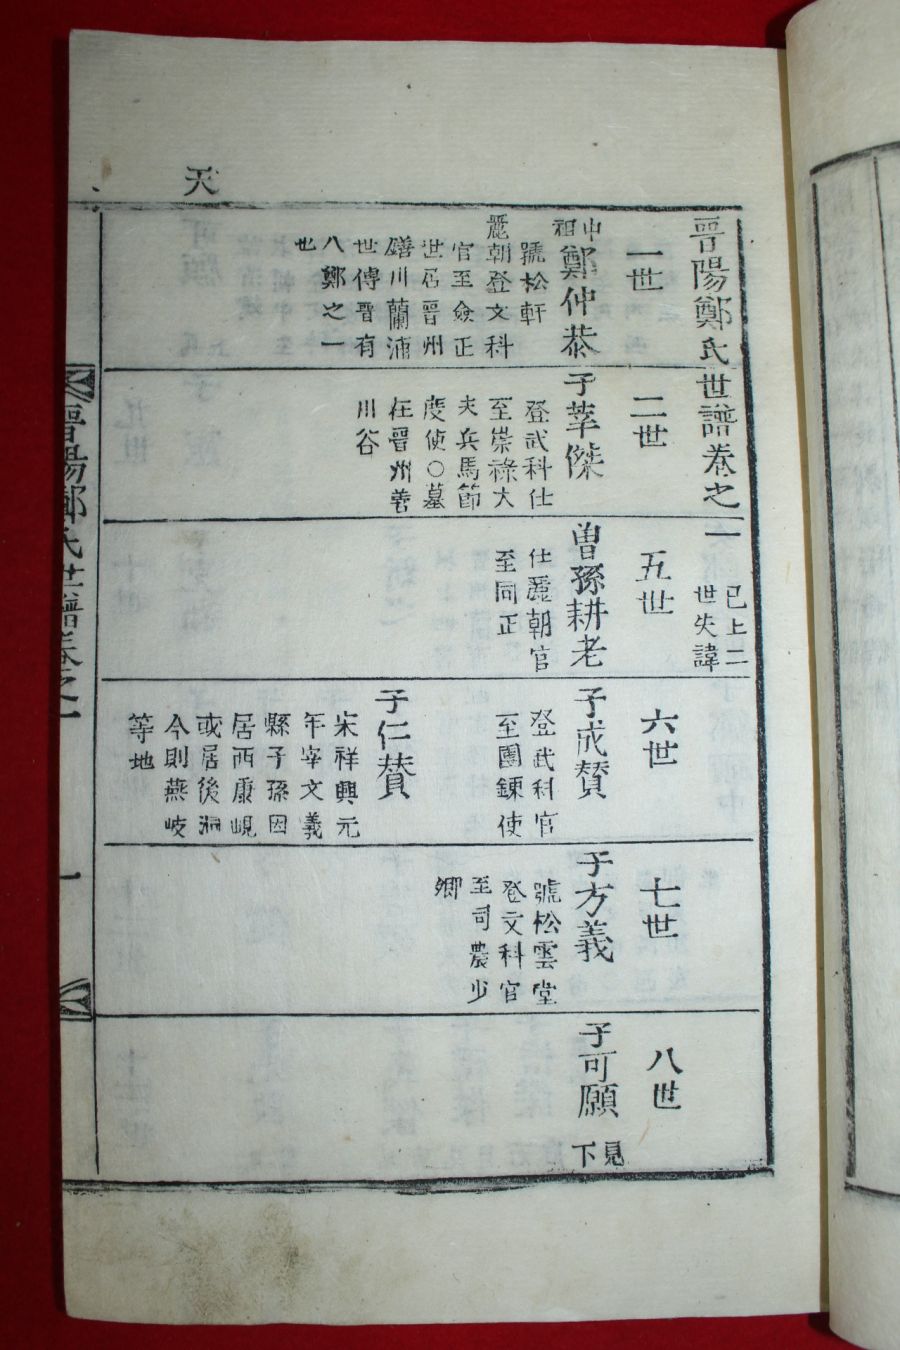 天
晉陽鄭氏世譜卷之一
已上二
世失諱
一世
中
祖
鄭仲恭
號松軒
麗朝登文科
官至僉正
世居晉州
鐥川蘭浦
世傳晋有
八鄭之一
也
二世
子莘傑
登武科仕
至崇祿大
夫兵馬節
度使○墓
在晉州善
川谷
五世
曾孫耕老
仕麗朝官
至同正
六世
子成贊
登武科官
至團鍊使
子仁贊
宋祥興元
年宰文義
縣子孫因
居西康峴
或居後洞
今則燕岐
等地
七世
子方義
號松雲堂
登文科官
至司農少
卿
八世
子可願
見
下
晉陽鄭氏世譜卷之一
一